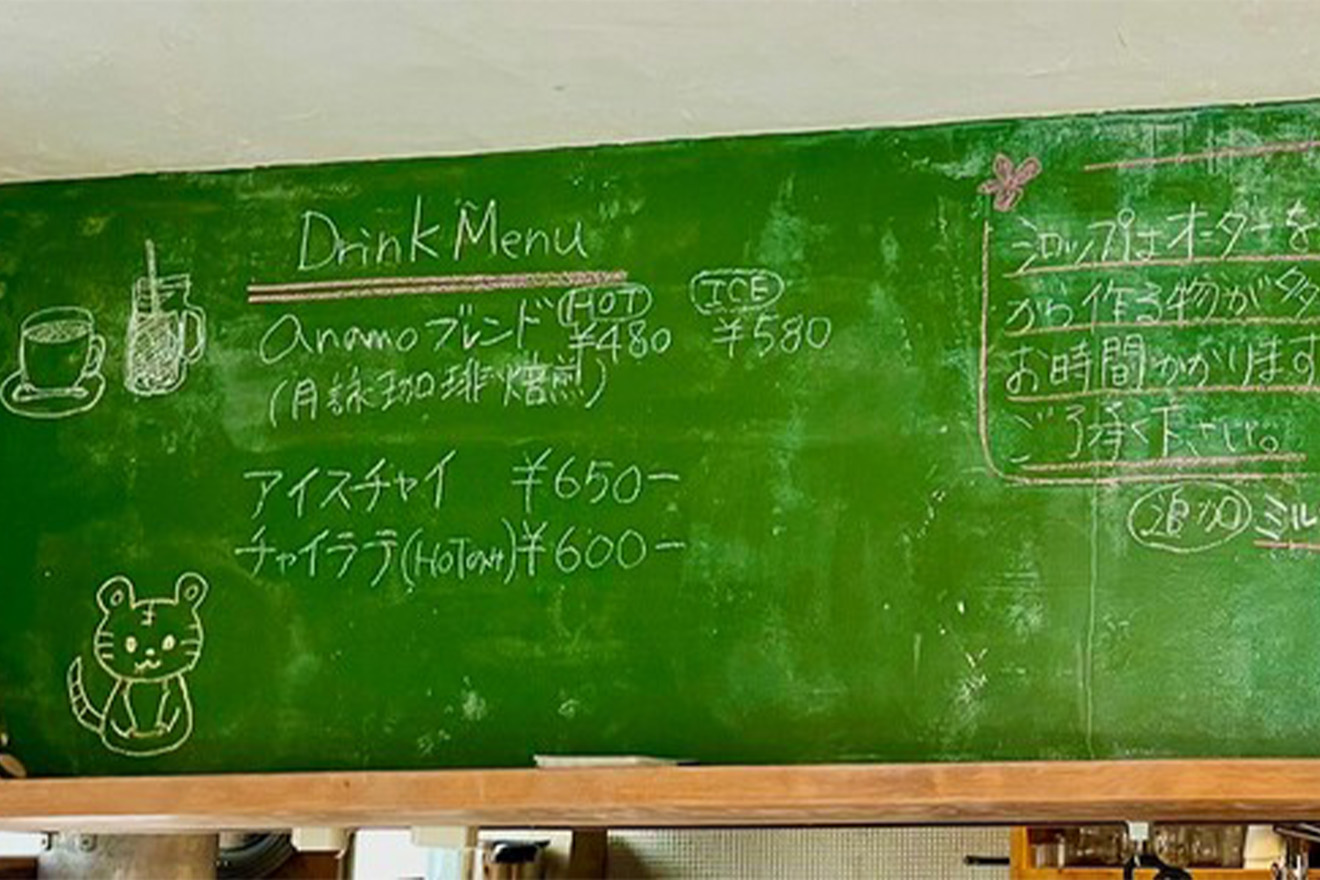 Drink Menu
anamoブレンド HOT ¥480 ICE ¥580
(月詠珈琲焙煎)
アイスチャイ ¥650ー
チャイラテ(HOTのみ)¥600ー
シロップはオーダーを
から作る物が多
お時間かかります
ご了承下さい。
追加 ミル